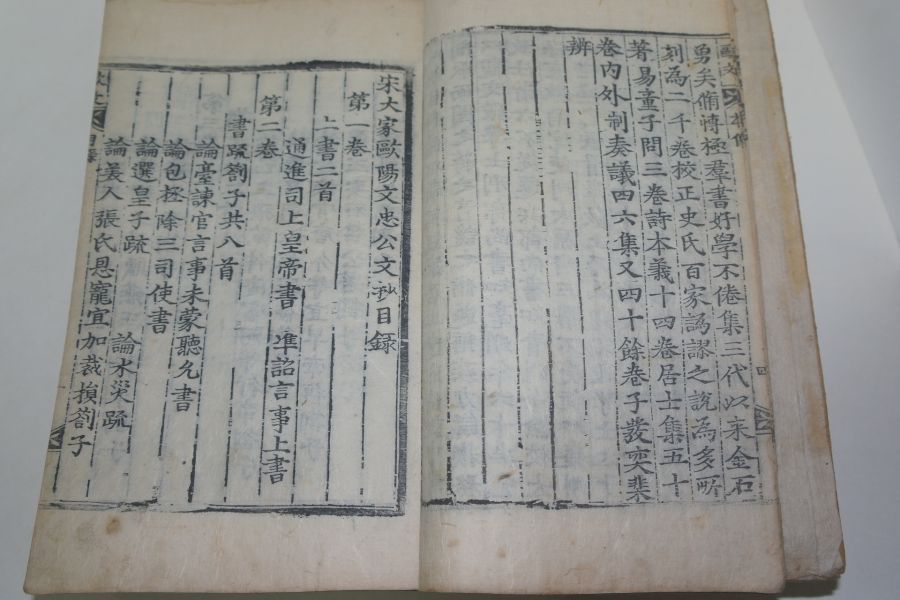 勇矣脩博極羣書好學不倦集三代以來金石
刻為一千卷校正史氏百家譌謬之說為多所
著易童子問三卷詩本義十四卷居士集五十
卷內外制奏議四六集又四十餘卷子發奕棐
辨
四
宋大家歐陽文忠公文抄目録
第一卷
上書二首
通進司上皇帝書 準詔言事上書
第二卷
書䟽劄子共八首
論臺諫官言事未蒙聽允書
論包拯除三司使書
論選皇子疏 論水災疏
論美人張氏恩寵宜加裁損劄子
目録